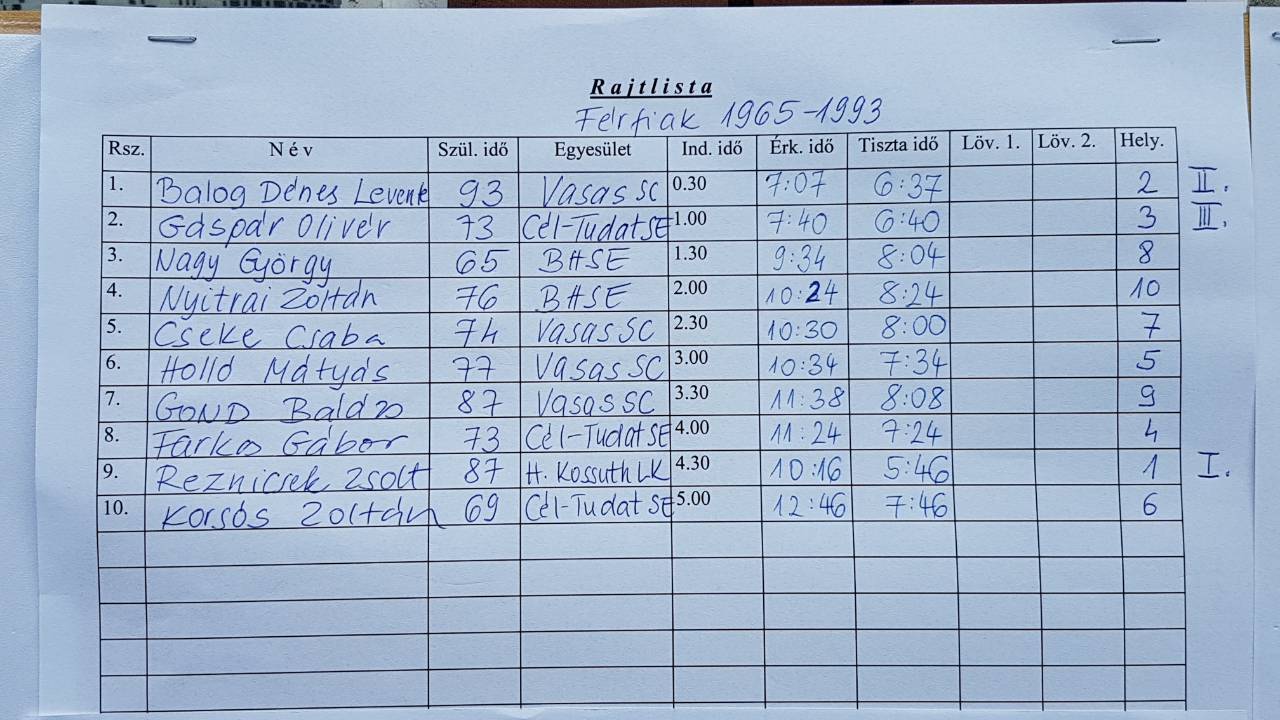 Rajtlista
Férfiak 1965-1993
Rsz. Név Szül. idő Egyesület Ind. idő Érk. idő Tiszta idő Löv. 1. Löv. 2. Hely.
1. Balog Dénes Levente 93 Vasas SC 0.30 7:07 6:37 2 II.
2. Gáspár Olivér 73 Cél-Tudat SE 1.00 7:40 6:40 3 III.
3. Nagy György 65 BHSE 1.30 9:34 8:04 8
4. Nyitrai Zoltán 76 BHSE 2.00 10:24 8:24 10
5. Cseke Csaba 74 Vasas SC 2.30 10:30 8:00 7
6. Holló Mátyás 77 Vasas SC 3.00 10:34 7:34 5
7. GOND Balázo 87 Vasas SC 3.30 11:38 8:08 9
8. Farko Gábor 73 Cél-Tudat SE 4.00 11:24 7:24 4
9. Reznicsek Zsolt 87 H. Kossuth LK 4.30 10:16 5:46 1 I.
10. Korsós Zoltán 69 Cél-Tudat SE 5.00 12:46 7:46 6